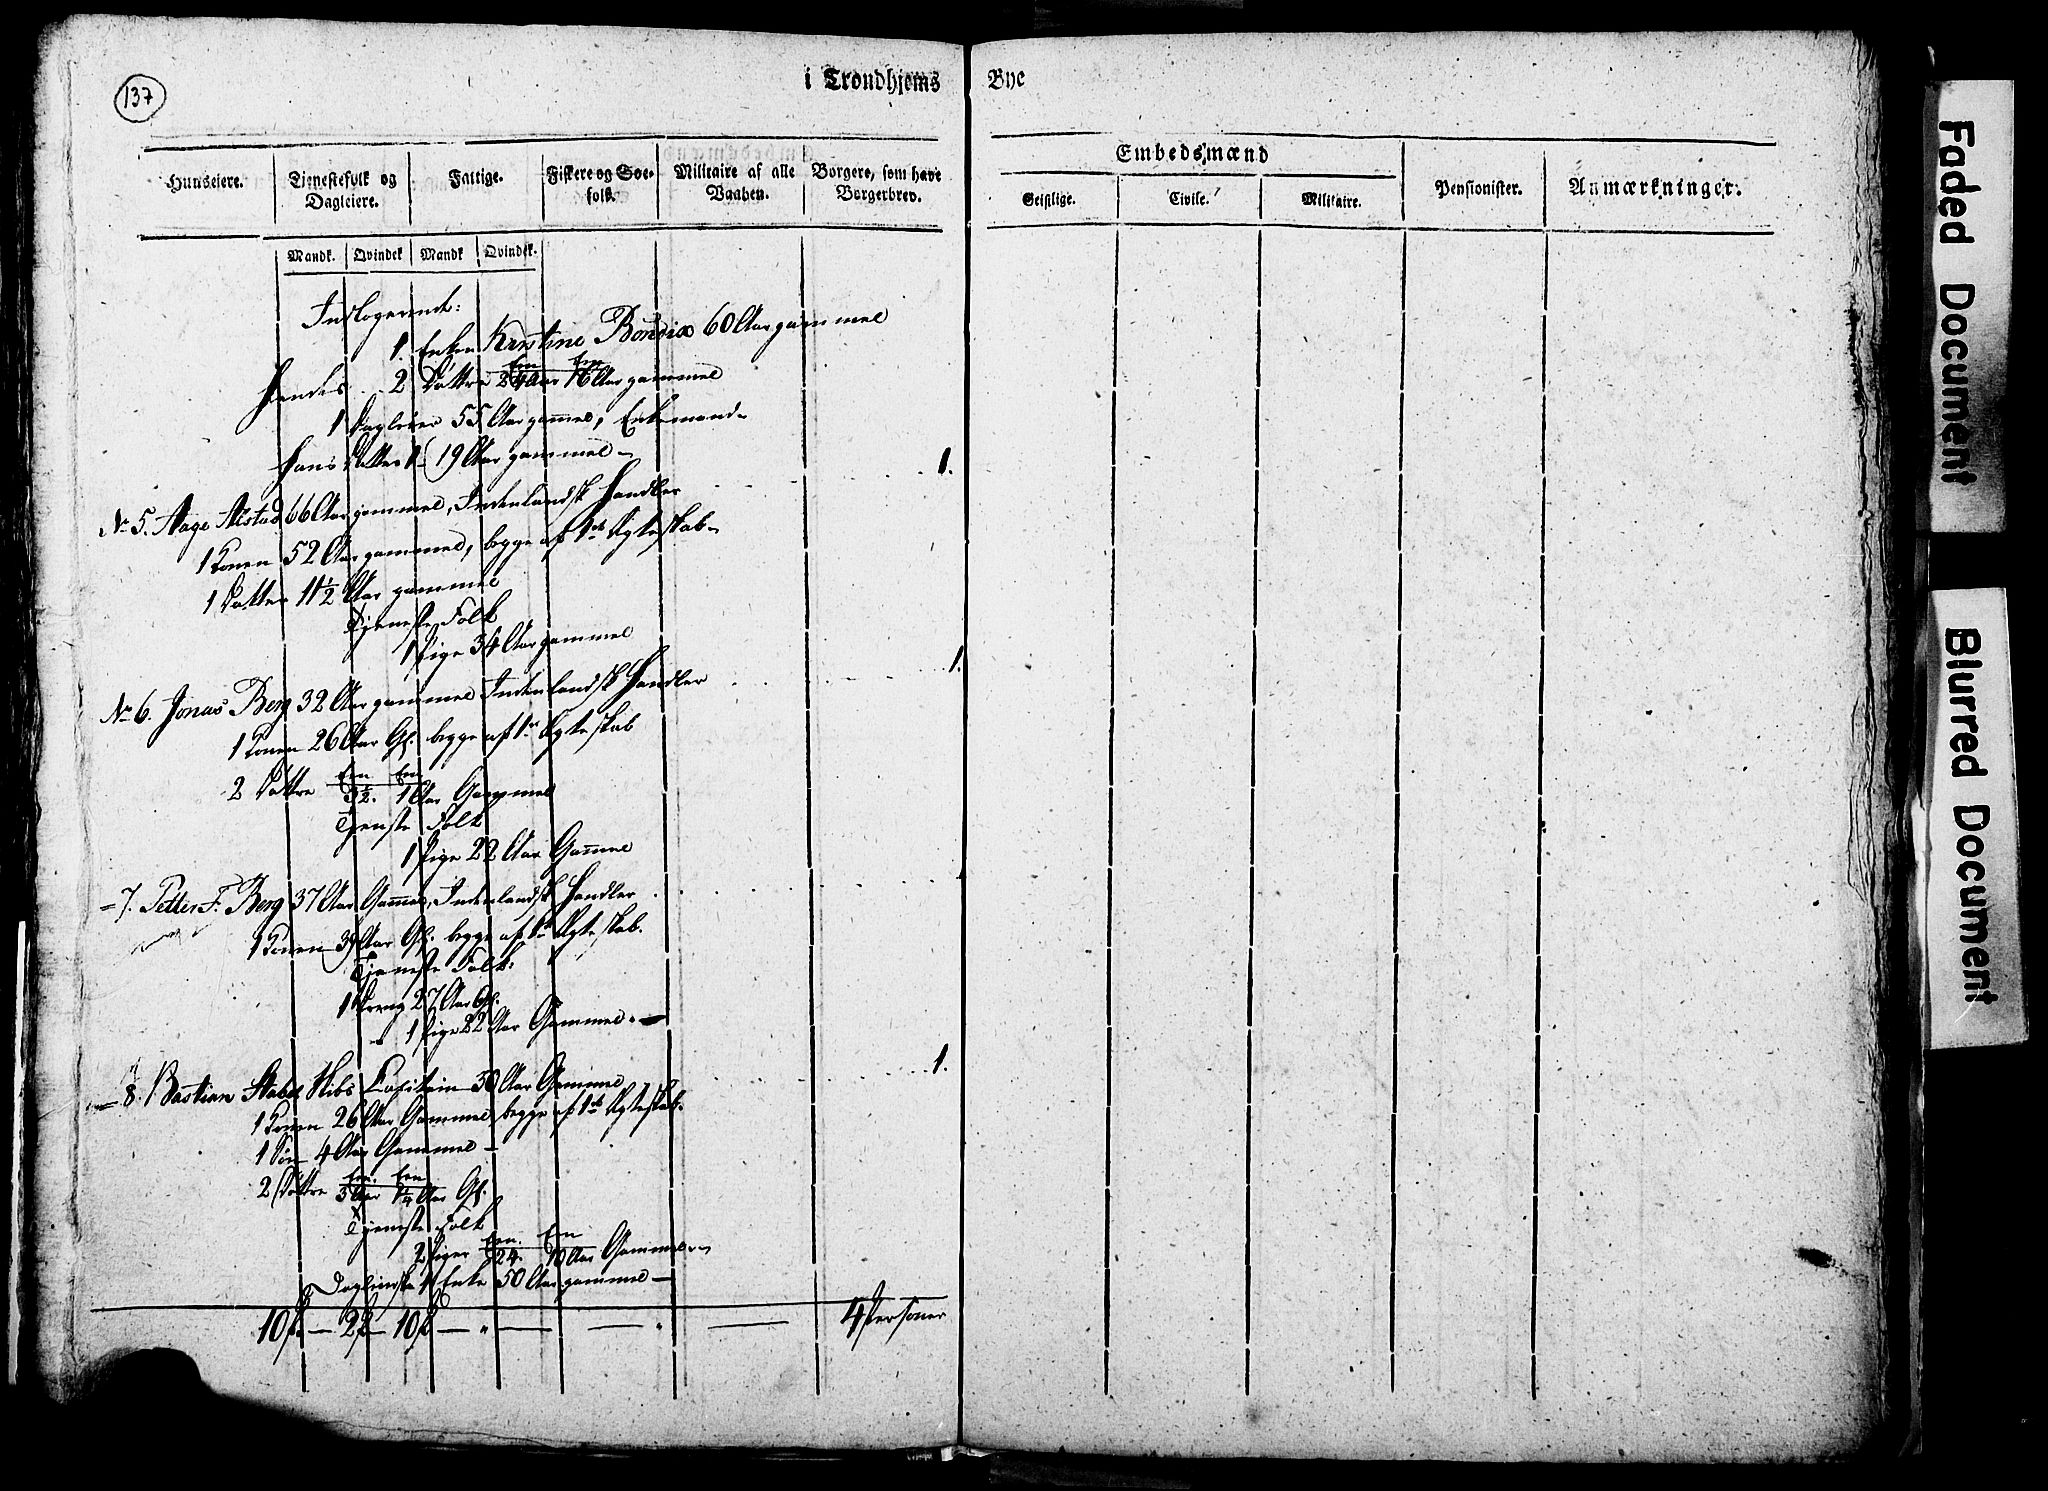 137
i Trondhjems Bye
Huuseiere.
Tienestefolk og Dagleiere.
Fattige.
Fiskere og Søefolk.
Militaire af alle Vaaben.
Borgere, som have Borgerbrev.
Embedsmænd
Geistlige.
Civile.
Militaire.
Pensionister.
Anmærkninger.
Mandk. Qvindek Mandk Qvindek.
Indlogerende:
1. Enken Kristine 60 Aar gammel
Hendes 2 Døttre Een 24 Aar Een 16 Aar gammel
1 Dagleier 55 Aar gammel, Enkemand
Hans Datter 1 19 Aar gammel 1.
No 5. Aage Alstad 66 Aar gammel, Indenlandsk Handler
1 Konen 52 Aar gammel, begge af 1ste Ægteskab
1 Datter 11½ Aar gammel
Tjeneste Folk
1 Pige 34 Aar gammel
1.
No 6. Jonas Berg 32 Aar gammel Indenlandsk Handler
1 Konen 26 Aar Gl. begge af 1ste Ægteskab
2 Døttre Een 3½. Een 1 Aar Gammel
Tjenste Folk
1 Pige 22 Aar Gammel
= 7. Petter F. Berg 37 Aar Gammel, Indenlandsk Handler
1 Konen 39 Aar Gl. begge af 1ste Ægteskab.
Tjeneste Folk:
1 Dreng 27 Aar Gl.
1 Pige 22 Aar Gammel.
1.
= 8. Bastian Stabel Skibs Capitain 30 Aar Gammel
1 Konen 26 Aar Gammel begge af 1ste Ægteskab.
1 Søn 4 Aar Gammel
2 Døttre Een. 3 Aar Een 1¼ Aar Gl.
Tjeneste Folk
2 Piger Een. 24. Een 10 Aar Gammel
1 Enke 50 Aar gammel
10 P. 2 P 10 P 4 Personer
Faded Document
Blurred Document